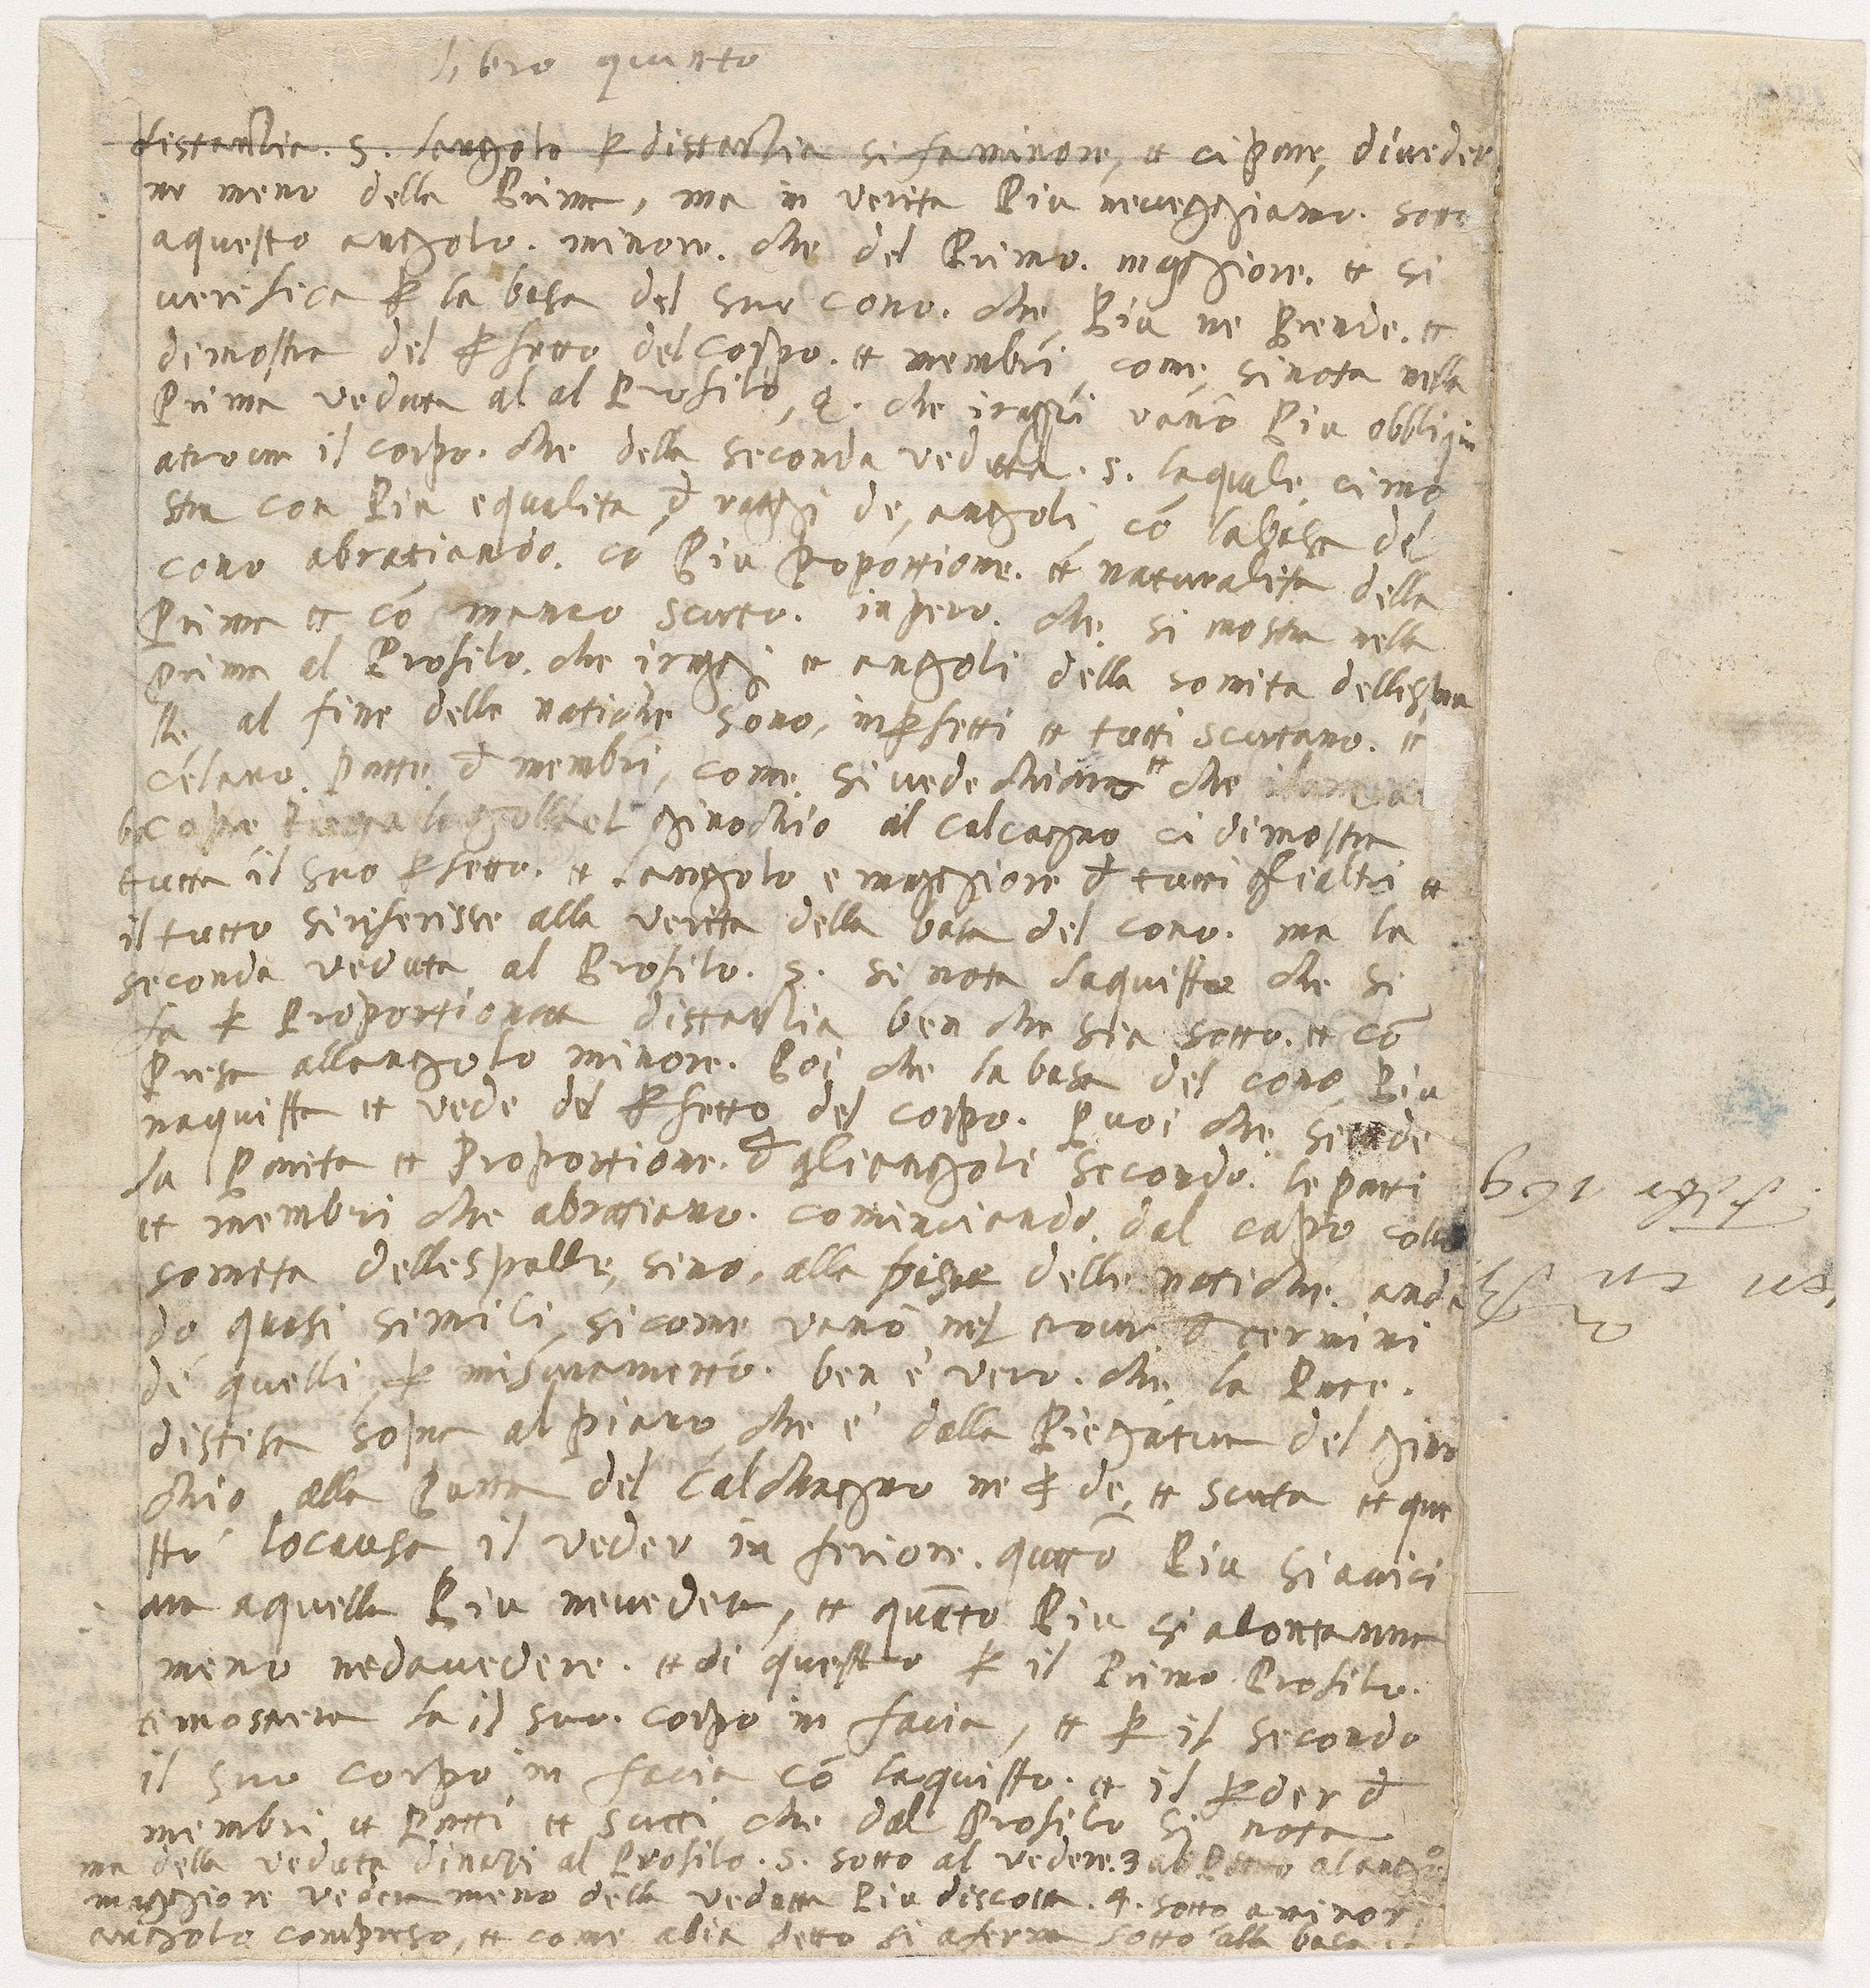 libro quinto
distantia. 5. langolo p distantia si fa minore, et ci pare, di veder
ne meno della Prima, ma in verita Piu neveggiamo. sotto
aquesto angolo. minore. che del Primo. maggiore. et si
verifica p la basa del suo cono. che, Piu ne Prende. et
dimostra del pfetto del corpo. et membri, come, sinota nella
Prima veduta al al Profilo, 4. che iraggi vanō Piu obbliqui
atrovar il corpo. che della seconda veduta. 5. laquale, cimo
stra con Piu equalita, d raggi de, angoli, cō labasa del
cono abratiando. cō Piu Proportione. et naturalita della
Prima et cō manco scurto. inpero. che, si mostra nella
prima al Profilo. che iraggi et angoli della somita dellespa
lle, al fine delle natiche sono, inpfetti et tutti scurtano. et
celano. parte, d membri, come, si vede chiaro et che
ginochio al calcagno ci dimostra
tutta il suo pfetto. et langolo e maggiore d tutti glialtri et
il tutto siriferisse alla verita della basa del cono. ma la
seconda veduta al Profilo. 5. si nota laquisto che si
fa p Proportionata distantia ben che sia sotto. et cō
presa allangolo minore. Poi che la basa del cono, Piu
naquista et vede del pfetto del corpo. Puoi che, si vede
la Parita et Proportione. d gliangoli secondo. le parti
et membri che abratiano. cominciando. dal capo colla
somita dellespalle, sino, alla fine delle natiche. anda
do, quasi simili, sicome vanō nel trovar d termini
de quelli, p misuramento. ben e vero. che, la Parte.
distesa sopra al piano, che e dalla Piegatura del gino
chio alla Punta del Calchagno ne pde, et scurta et que
sto locausa il veder in feriore. quātō Piu siavici
ara aquella Piu nevedera, et quāto Piu si alontanna
meno nedavedere. et di questo p il Primo Profilo.
cimostrera la il suo. corpo in facia, et p il secondo
il suo corpo in facia cō laquisto. et il pder d
membri et Parti et scurti che dal Profilo si nota
ma della veduta dinazi al Profilo. 5. sotto al vedere. 3 al angº
maggiore vedera meno della veduta Piu discosta. 4. sotto aminor
angolo compreso, et come abia detto si aferma sotto alla basa